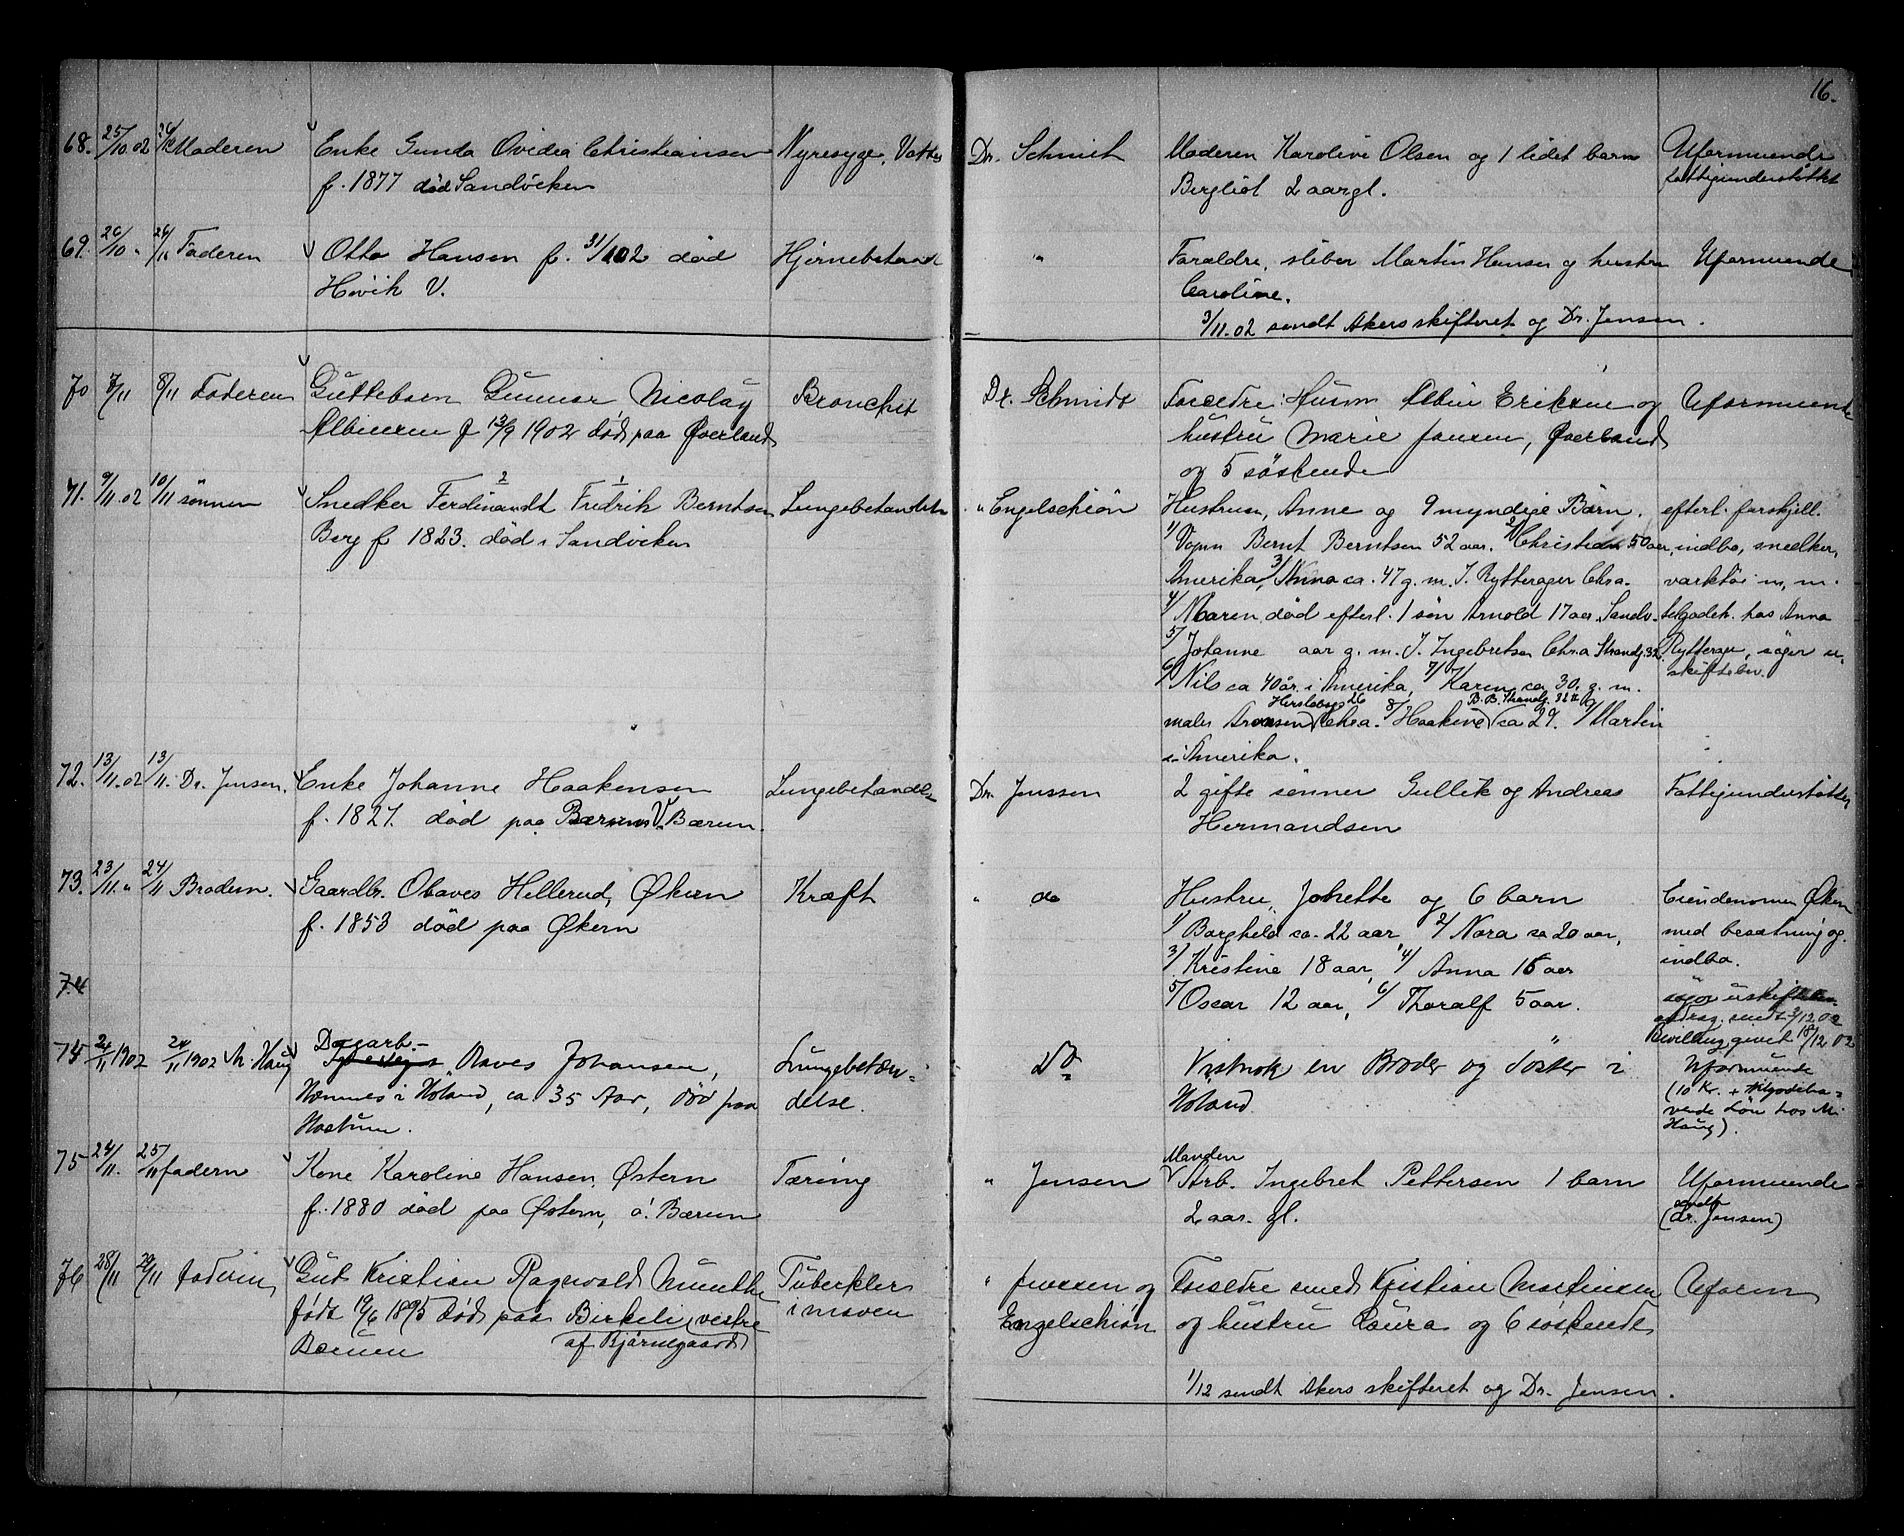 16.
68. 25/10.02 26/10 Moderen Enke Gunda Ovidea Christiansen Nyresyge, Vatters Dr. Schmidt Moderen Karoline Olsen og 1 lidet barn Uformuende
f. 1877 død Sandviken Bergliot 2 aargl. fattigunderstøttet
69. 26/10 " Faderen Otto Hansen f. død Hjernebetænd " Forældre, sliber Martin Hansen og hustru Uformuende
Høvik V. Caroline.
3/11.02 sendt Akers skifteret og Dr. Jensen.
70 7/11 8/11 Faderen Guttebarn Gunnar Nicolay Bronchit Dr. Schmidt Forældre: Husm Albin Eriksen og Uformuende
Albinsen f 13/9 1902 død paa Øverland hustru Marie Jansen, Øverland
og 5 søskende
71. 9/11.02 10/11 sønnen Snedker Ferdinandt Fredrik Berntsen Lungebetændelse " Engelschiøn Hustruen, Anne og 9 myndige Børn. efterl. forskjell.
Berg f 1823. død i Sandviken 1/ Vogn Bernt Berntsen 52 aar. 2/ Christian 50 aar, indbo, snedker,
Amerika, 3/ Anna ca. 47 g. m. J. Rytterager Chra. værktøi m, m.
4/ Maren, død efterl. 1 søn Arnold 17 aar. Sandv. tilgodeh. hos Anna
5/ Johanne aar g. m. J. Ingebretsen Chr.a Strandg. 32. Rytterager, søger u-
6/ Nils ca 40 år i Amerika, 7/ Karen ca 30. g. m. skiftebev.
Herslebsg 26 B. B. Strandg. 32
maler Aronsen Chra. 8/ Haakine ca 29. 9/ Martin
i Amerika.
72. 13/11.02 13/11. Dr. Jensen. Enke Johanne Haakensen Lungebetændelse Dr. Jenssen 2 gifte sønner Gullik og Andreas Fattigunderstøttet
f. 1827. død paa Bærums V. Bærum. Hermandsen
73. 23/11. " 24/11 Brodern. Gaardbr. Olaves Hellerud, Økern Kræft " do Hustru, Johette og 6 barn Eiendommen Økern
f. 1853 død paa Økern 1/ Borghild ca. 22 aar, 2/ Nora ca 20 aar, med besætning og
3/ Kristine 18 aar, 4/ Anna 15 aar indbo.
74 5/ Oscar 12 aar, 6/ Thoralf 5 aar. søger uskifte
andrag. sendt 3/12 02
Bevilling givet 18/12 02
Dagarb.
75 24/11 1902 24/11 1902 M. Haug Olaves Johansen, Lungebetæn- Do Vistnok en Broder og Søster i Uformuende
Hemnes i Høland, ca 35 Aar, død paa delse. Høland. (10 Kr. + tilgodeha-
Høstum. vende Løn hos M.
Haug).
75 24/11. 25/11 fadern Kone Karoline Hansen, Østern Tæring " Jensen Manden Arb. Ingebret Pettersen 1 barn Uformuende
f. 1880 død paa Østern, ø. Bærum 2 aar. gl. (dr. Jensen)
76 28/11 29/11 faderen Gut Kristian Ragnvald Munthe Tuberkler " Jenssen og Forældre smed Kristian Martinsen Uform
født 19/6 1895 død paa Birkeli, vestre i maven Engelschiøn og hustru Laura og 6 søskende
Bærum af Bjørnegaard
1/12 sendt Akers skifteret og Dr. Jensen.